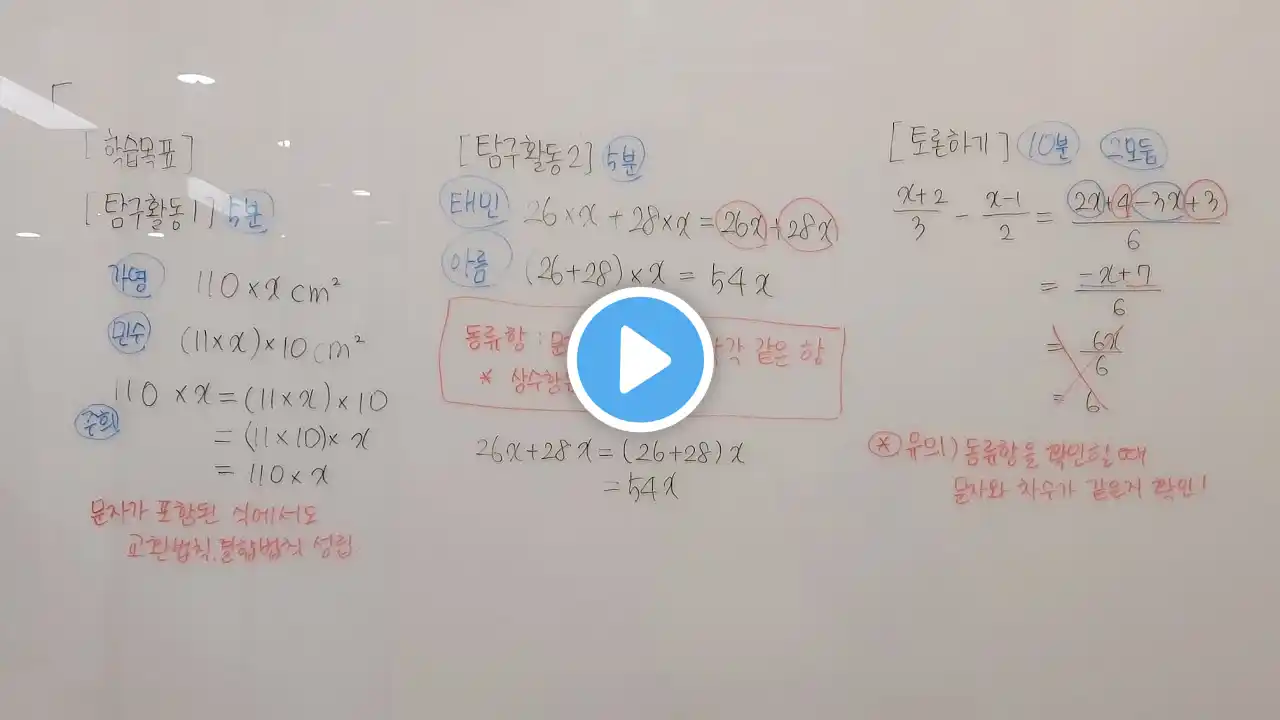 [학습목표]
[탐구활동1] 5분
가영 110×x cm²
민수 (11×x)×10 cm²
110 ×x=(11×x)×10
=(11×10)×x
=110×x
주희
문자가 포함된 식에서도
교환법칙, 결합법칙 성립
[탐구활동2] 5분
태민 26×x+28×x=26x+28x
아름 (26+28)×x = 54x
동류항 : 같은 항
* 상수항
26x+28x=(26+28)x
=54x
[토론하기] 10분 2모둠
(x+2)/3 - (x-1)/2 = (2x+4-3x+3)/6
= (-x+7)/6
= 6x/6
= 6
* 유의) 동류항을 확인할 때
문자와 차수가 같은지 확인!